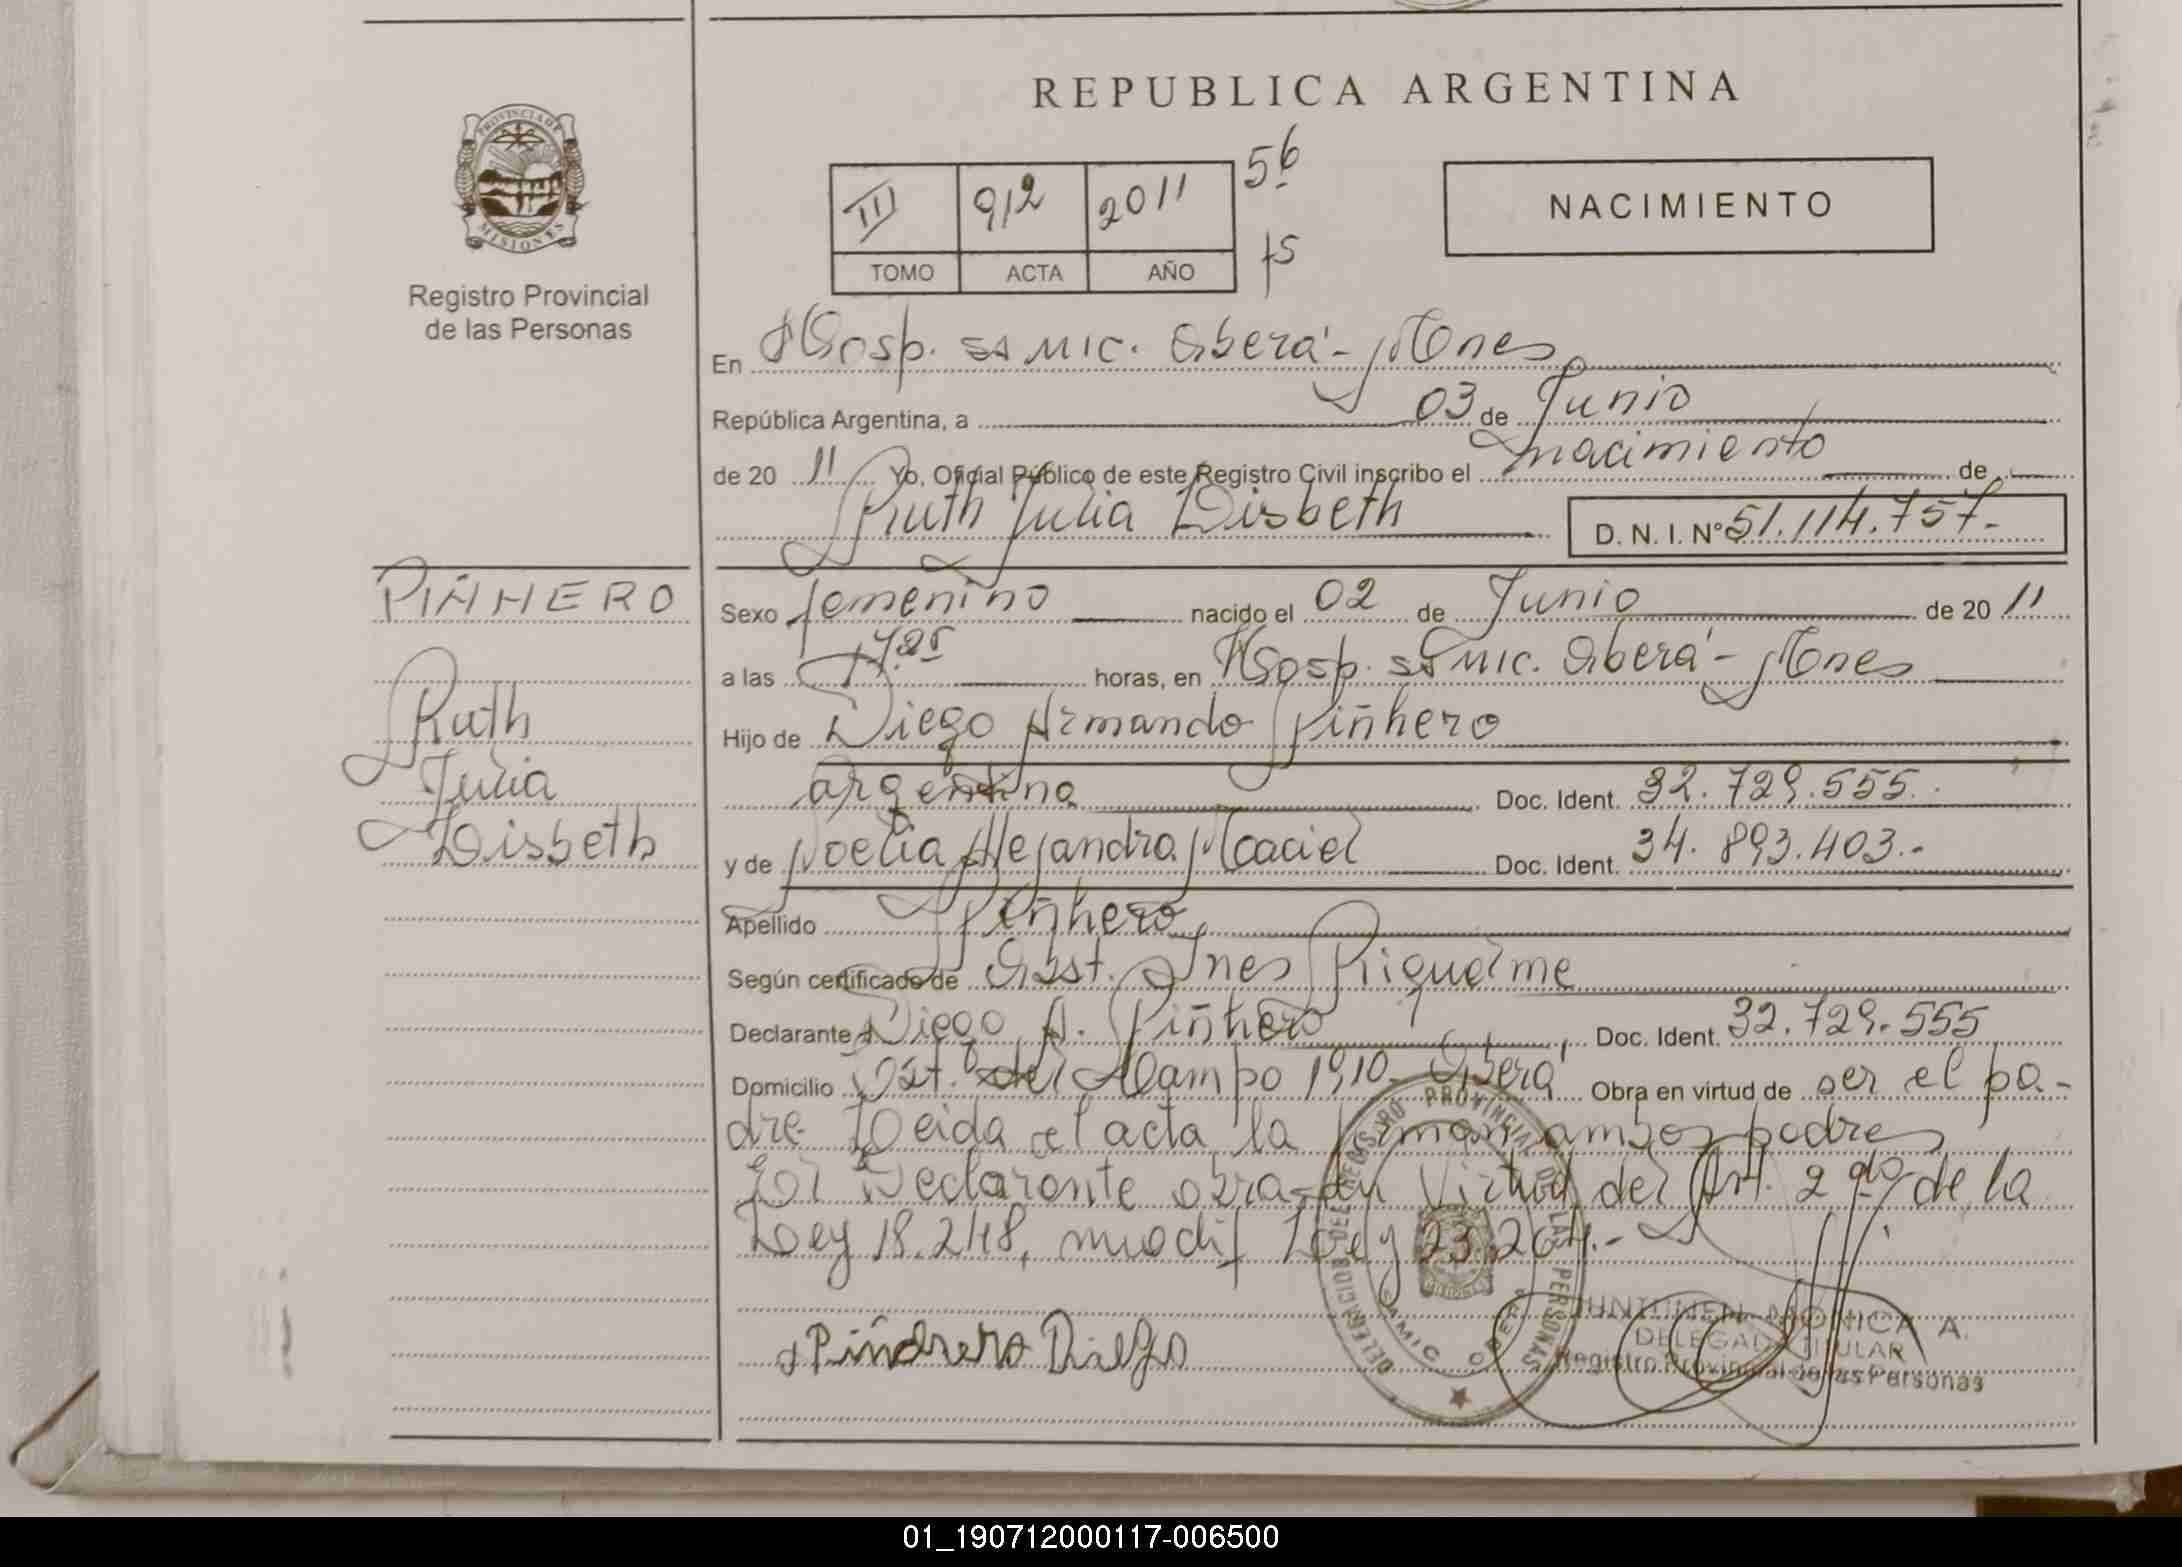 REPUBLICA ARGENTINA
PROVINCIA DE
MISIONES
Registro Provincial
de las Personas
III 912 2011 56
TOMO ACTA AÑO
NACIMIENTO
En Hosp. SAMIC. Oberá - Mnes
República Argentina, a 03 de Junio
de 20 11 Yo, Oficial Público de este Registro Civil inscribo el nacimiento de
Ruth Julia Lisbeth D. N. I. N° 51.114.757.-
PIÑHERO
Ruth
Julia
Lisbeth
Sexo femenino nacido el 02 de Junio de 20 11
a las horas, en Hosp. SAMIC. Oberá - Mnes
Hijo de Diego Armando Piñhero
argentina Doc. Ident. 32.729.555.
y de Noelia Alejandra Maciel Doc. Ident. 34.893.403.-
Apellido Piñhero
Según certificado de Obst. Ines Riquelme
Declarante Diego A. Piñhero Doc. Ident. 32.729.555
Domicilio del Campo 1910 - Oberá Obra en virtud de ser el pa-
dre Leida el acta la firman ambos padres
El Declarante obra en Virtud del Art. 2 do. de la
Ley 18.248, modif Ley 23.264.-
Diego
DELEGACION DEL REGISTRO PROVINCIAL DE LAS PERSONAS
SAMIC OBERA
JUNTUNEN MONICA A.
DELEGADA TITULAR
Registro Provincial de las Personas
01_190712000117-006500